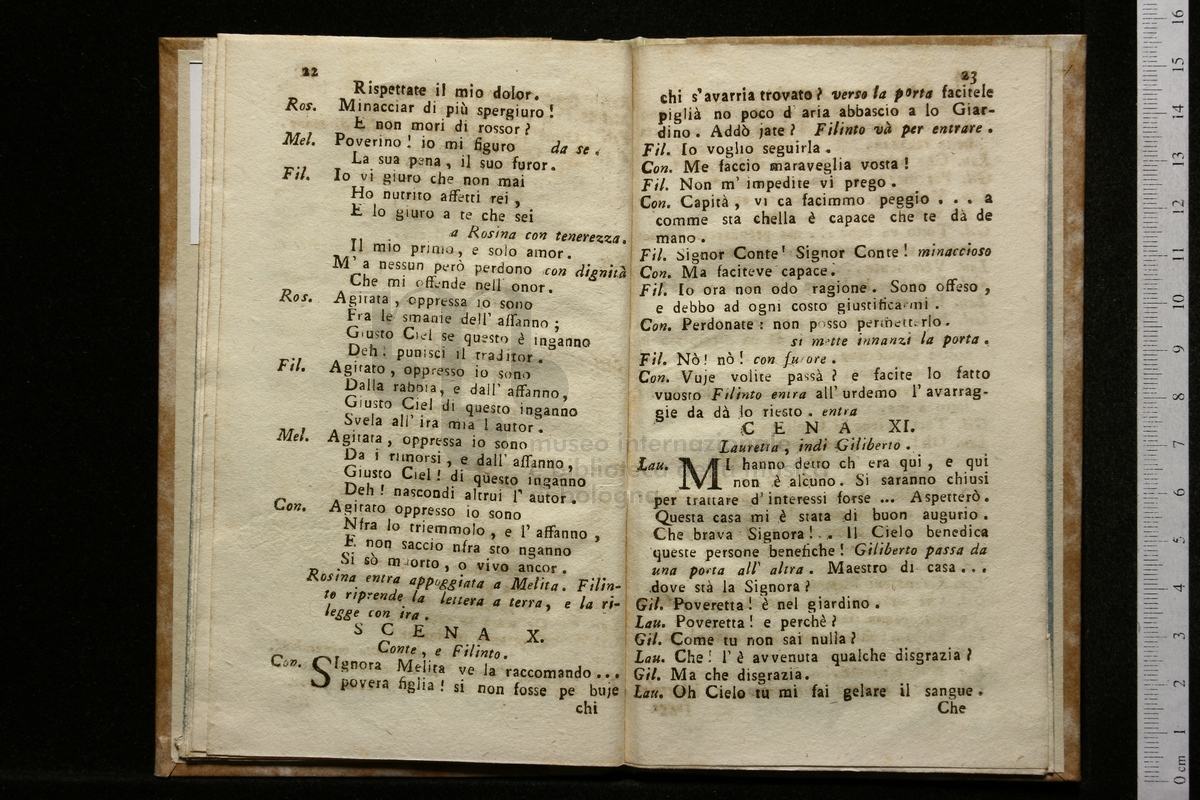 22
Rispettate il mio dolor.
Ros. Minacciar di più spergiuro!
E non mori di rossor?
Mel. Poverino! io mi figuro da se.
La sua pena, il suo furor.
Fil. Io vi giuro che non mai
Ho nutrito affetti rei,
E lo giuro a te che sei
a Rosina con tenerezza.
Il mio primo, e solo amor.
M' a nessun però perdono con dignità
Che mi offende nell onor.
Ros. Agitata, oppressa io sono
Fra le smanie dell' affanno;
Giusto Ciel se questo è inganno
Deh! punisci il traditor.
Fil. Agitato, oppresso io sono
Dalla rabbia, e dall' affanno,
Giusto Ciel di questo inganno
Svela all' ira mia l autor.
Mel. Agitata, oppressa io sono
Da i rimorsi, e dall' affanno,
Giusto Ciel! di questo inganno
Deh! nascondi altrui l' autor.
Con. Agitato oppresso io sono
Nfra lo triemmolo, e l' affanno,
E non saccio nfra sto nganno
Si sò muorto, o vivo ancor.
Rosina entra appoggiata a Melita. Filin-
to riprende la lettera a terra, e la ri-
legge con ira.
SCENA X.
Conte, e Filinto.
Con. SIgnora Melita ve la raccomando...
povera figlia! si non fosse pe buje
chi
23
chi s'avarria trovato? verso la porta facitele
piglià no poco d aria abbascio a lo Giar-
dino. Addò jate? Filinto và per entrare.
Fil. Io voglio seguirla.
Con. Me faccio maraveglia vosta!
Fil. Non m' impedite vi prego.
Con. Capità, vi ca facimmo peggio... a
comme sta chella è capace che te dà de
mano.
Fil. Signor Conte! Signor Conte! minaccioso
Con. Ma faciteve capace.
Fil. Io ora non odo ragione. Sono offeso,
e debbo ad ogni costo giustificarmi.
Con. Perdonate: non posso permetterlo.
si mette innanzi la porta.
Fil. Nò! nò! con furore.
Con. Vuje volite passà? e facite lo fatto
vuosto Filinto entra all' urdemo l' avarrag-
gie da dà lo riesto. entra
SCENA XI.
Lauretta, indi Giliberto.
Lau. MI hanno detto ch era qui, e qui
non è alcuno. Si saranno chiusi
per trattare d' interessi forse ... Aspetterò.
Questa casa mi è stata di buon augurio.
Che brava Signora!.. Il Cielo benedica
queste persone benefiche! Giliberto passa da
una porta all' altra. Maestro di casa...
dove stà la Signora?
Gil. Poveretta! è nel giardino.
Lau. Poveretta! e perchè?
Gil. Come tu non sai nulla?
Lau. Che! l' è avvenuta qualche disgrazia?
Gil. Ma che disgrazia.
Lau. Oh Cielo tu mi fai gelare il sangue.
Che
museo internazionale
biblioteca della musica
bologna
0 cm 1 2 3 4 5 6 7 8 9 10 11 12 13 14 15 16